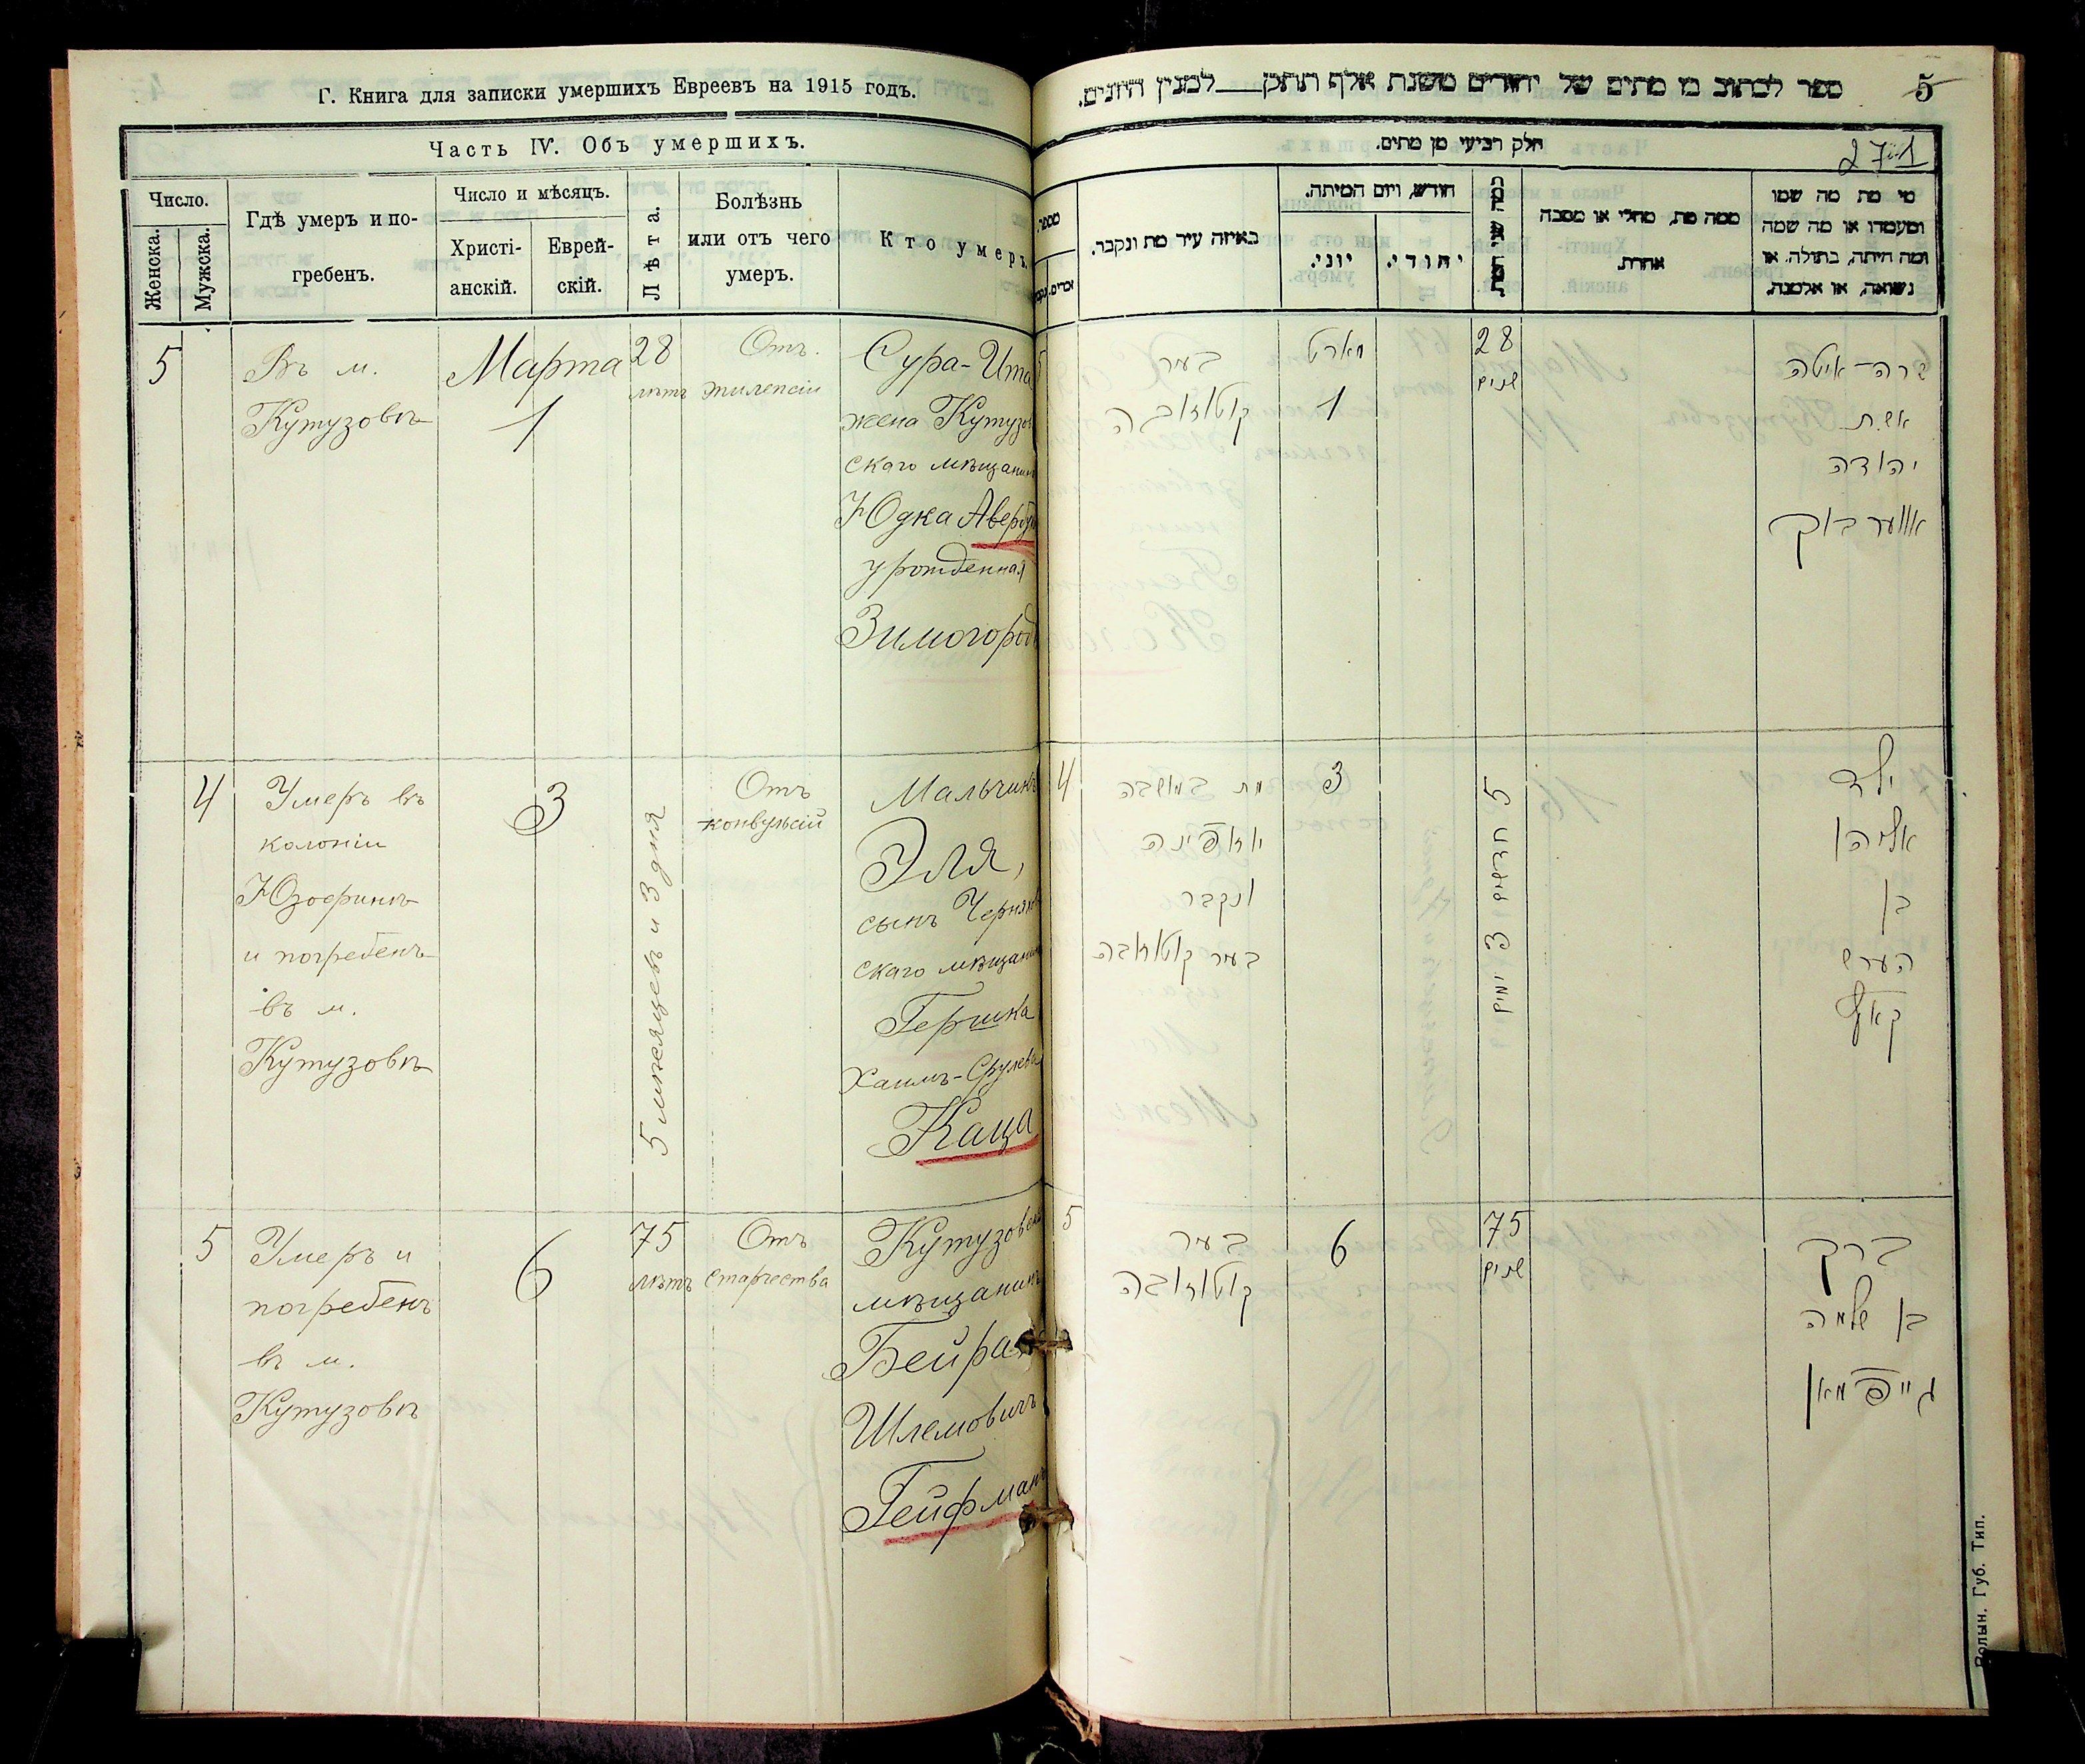 Г. Книга для записки умершихъ Евреевъ на 1915 годъ.
Часть IV. Объ умершихъ.
Число.
Женска.
Мужска.
Гдѣ умеръ и по-
гребенъ.
Число и мѣсяцъ.
Христі-
анскій.
Еврей-
скій.
Лѣта.
Болѣзнь
или отъ чего
умеръ.
Кто умеръ
5
Въ м.
Кутузовкѣ
Марта
1
28
лѣтъ
Отъ
эпилепсіи
Сура-Ита
жена Кутузов
скаго мѣщанин
Юдка Авербу
урожденная
Зимогород
4
Умеръ въ
колоніи
Юзефинкѣ
и погребенъ
въ м.
Кутузовкѣ
3
5 мѣсяцевъ и 3 дня
Отъ
конвульсій
Мальчикъ
Эля,
сынъ Черняхов
скаго мѣщанин
Гершка
Хаимъ-Срулева
Каца
5
Умеръ и
погребенъ
въ м.
Кутузовкѣ
6
75
лѣтъ
Отъ
старчества
Кутузовскі
мѣщанинъ
Бейрах
Шлемовичъ
Гейфманъ
ספר לכתוב בו מתים של יהודים משנת אלף תתק למנין היונים.
5
חלק רביעי מן מתים.
271
מספר
באיזה עיר מת ונקבר.
חודש, ויום המיתה.
יוני.
יהודי.
ממה מת, מחלי או מסבה
אחרת.
מי מת מה שמו
ומעמדו או מה שמה
ומה היתה, בתולה, או
נשואה, או אלמנה.
בעיר
קוטוזובה
מארט
1
28
שנים
שרה-איטה
אשת
יהודה
אווערבוק
4
מת במושבה
יוזפינה
ונקבר
בעיר קוטוזובה
3
5 חדשים 3 ימים
ילד
אליהו
בן
הערש
קאץ
5
בעיר
קוטוזובה
6
75
שנים
ברך
בן שלמה
גייפמאן
Волын. Губ. Тип.